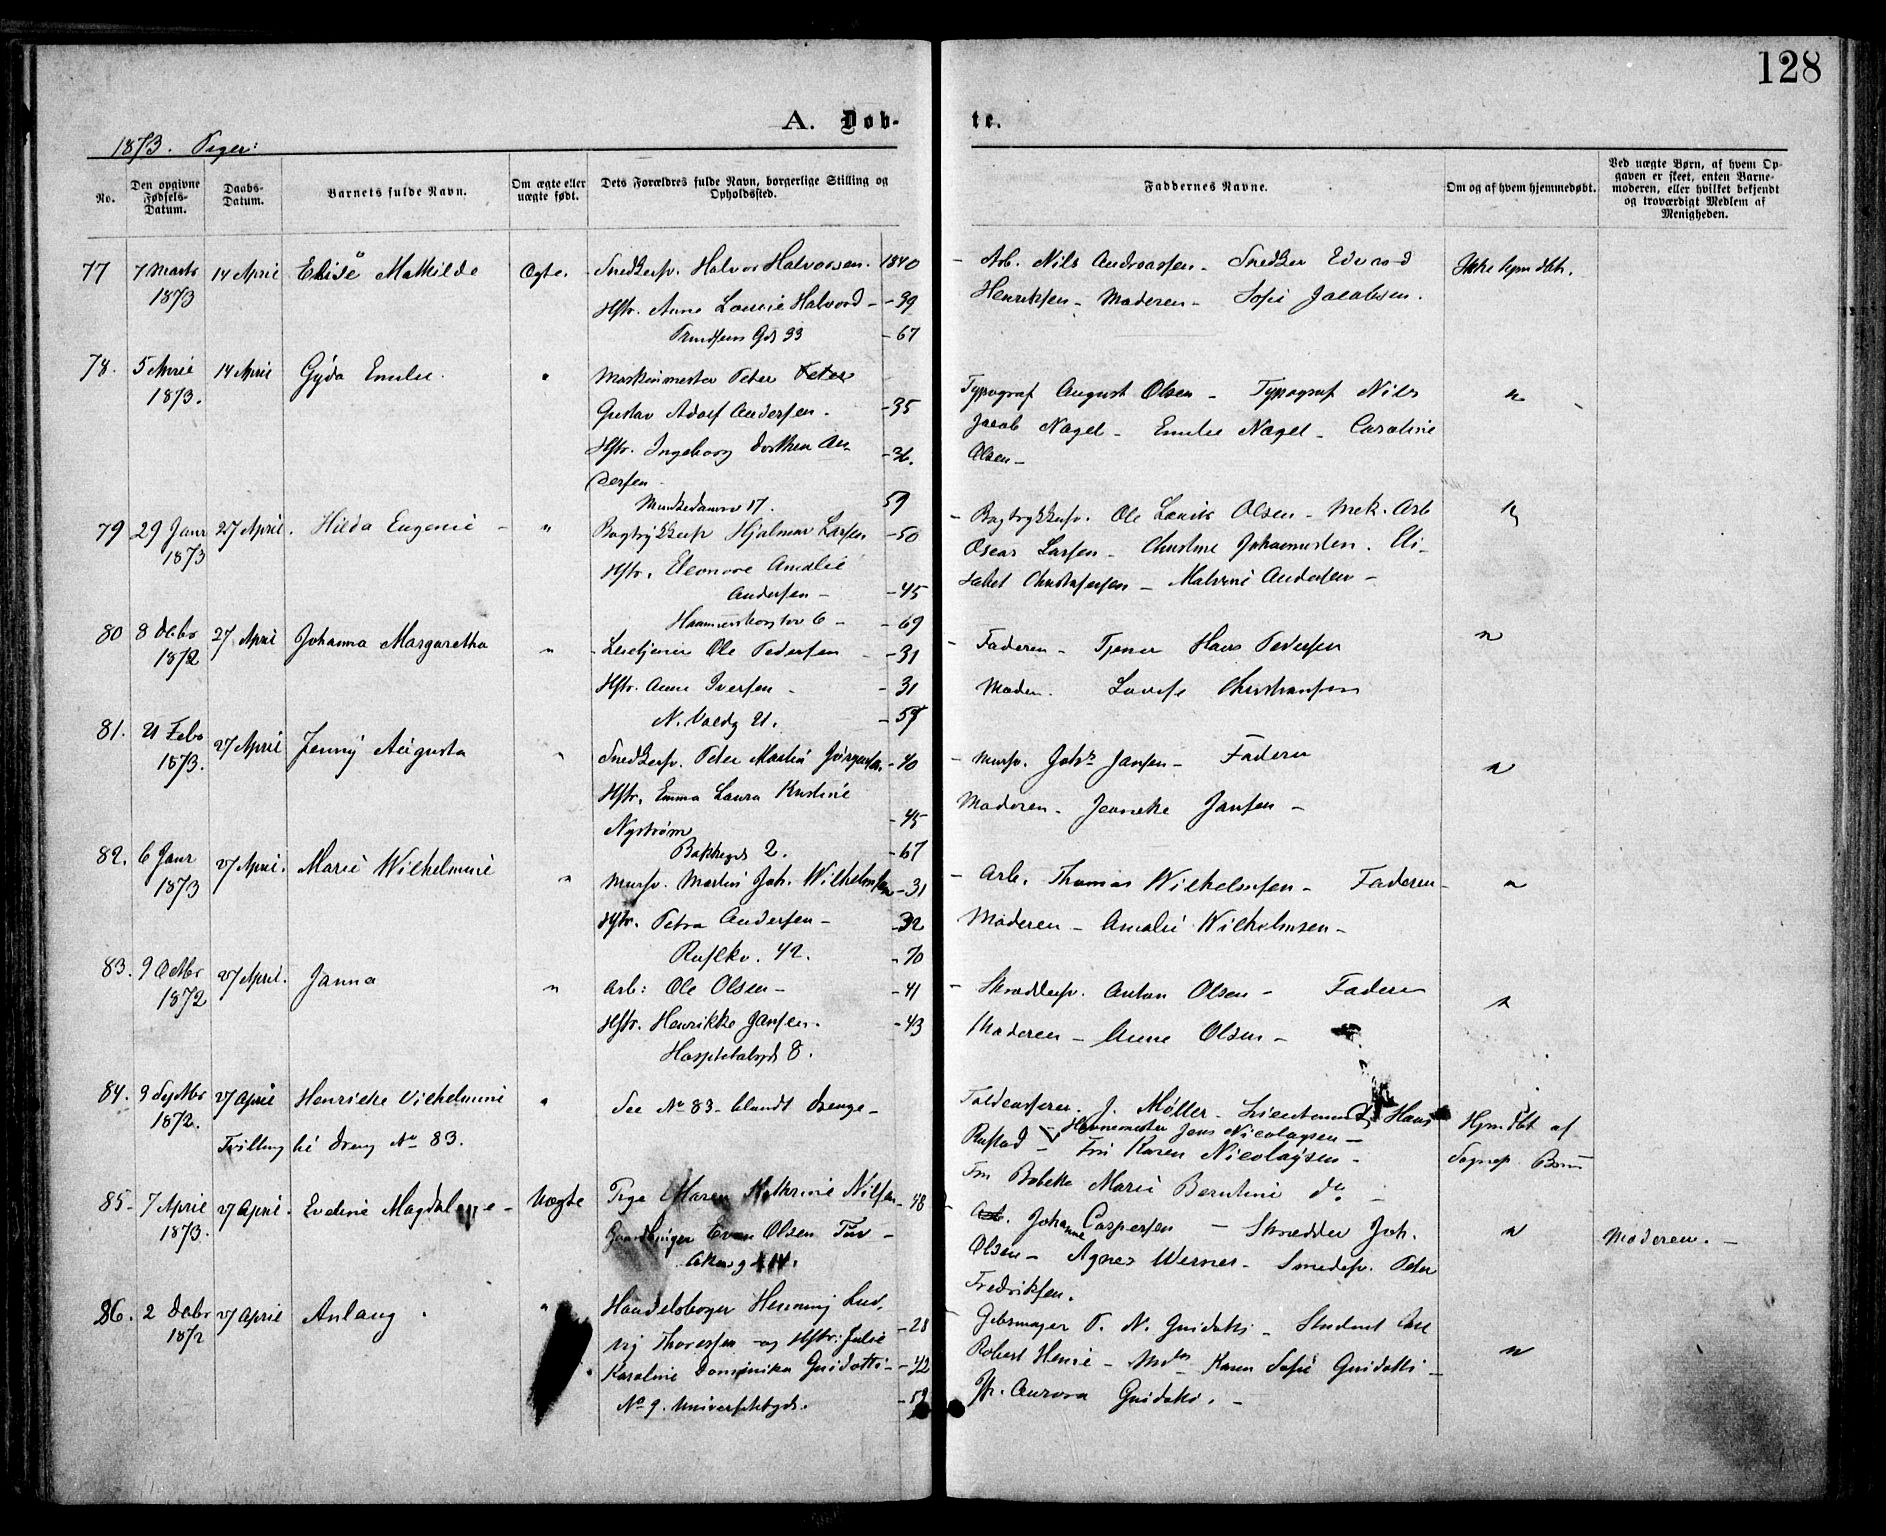 128
A. Døbte.
1873. Piger:
No.
Den opgivne Fødsels-Datum.
Daabs-Datum.
Barnets fulde Navn.
Om ægte eller uægte født.
Dets Forældres fulde Navn, borgerlige Stilling og Opholdssted.
Faddernes Navne.
Om og af hvem hjemmedøbt.
Ved uægte Børn, af hvem Opgaven er skeet, enten Barnemoderen, eller hvilket bekjendt og troværdigt Medlem af Menigheden.
77 7 Marts 14 April Elise Mathilde Ægte. Snedkersv. Halvor Halvorsen. 1840 - Arb. Nils Andreassen - Snedker Edvard Ikke hjmdbt.
1873 Hstr. Anne Lovise Halvord - -39 Henriksen - Moderen - Sofie Jacobsen.
Gds 33 -67
78. 5 April 14 April Gyda Emilie. " Maskinmester Peter Peter Typograf August Olsen - Typograf Nils "
1873. Gustav Adolf Andersen. -35 Jacob Nagel - Emilie Nagel - Caroline
Hstr. Ingeborg Dorthea An- -36. Olsen -
dersen -
Munkedamsv 17. 59
79 29 Janr 27 April. Hilda Eugenie - " Bogtrykkersv Hjalmar Larsen -50 - Bogtrykkersv. Ole Lauris Olsen - Mek. Arb "
1873 Hstr. Eleonore Amalie Oscar Larsen - Christine Johannesen. Eli-
Andersen - -45 sabet Christofersen - Malvine Andersen -
Hammersborgtorv 6 - -69
80 8 Debr 27 April Johanna Margaretha " - Ole Pedersen -31 - Faderen - Tjener Hans Pedersen "
1872 Hstr. Anne Iversen - -31 Moder. Lovise Christiansen
N. Voldg 21. -59
81. 21 Febr 27 April Jenny Augusta " Snedkersv. Peter Martin Jørgensen -40 - Mursv. Johs Jansen - Faderen "
1873. Hstr. Emma Laura Kristine Moderen - Jansen -
Nystrøm -45
Bakkegd 2. -67
82. 6 Janr 27 April. Marie Wilhelmine " Mursv. Martin Joh. Wilhelmsen -31 - Arb. Thomas Wilhelmsen - Faderen - "
1873 Hstr. Petra Andersen - -32 Moderen - Amalie Wilhelmsen -
Rusløkv. 42. -70
83. 9 Octbr 27 April. Janna " Arb: Ole Olsen - -41 - Skræddersv. Anton Olsen - Faderen "
1872 Hstr. Henrikke Jansen. -43 Moderen - Anne Olsen -
Hospitalsgd 8.
84. 9 Septbr 27 April Henrikke Vilhelmine " See No 83 - blandt Drenge - Toldcasserer. J. Møller - Lieutenant Hans Hjmdbt af
1872. Havnemester Jens Nicolaysen -
Tvilling til Dreng No 83. Rustad - Fru Karen Nicolaysen - Sognep. Bruun
Fru Marie Berntine do -
85 - 7 April 27 April. Eveline Magdalene - Uægte Pige Maren Kathrine Nilsen -48 Arb. Johanne Caspersen - Skrædder Joh. " Moderen. -
1873. Even Olsen Olsen - Agnes Werner - Smedesv. Peter
Akersgd 14. Fredriksen.
86. 2 Debr 27 April Anlaug. " Handelsborger Henning Lud- Gibsmager P. N. Guidotti - Student Carl "
1872 vig Thoresen - og Hstr: Julie -28 Robert Henie - Karen Sofie Guidotti -
Karoline Dominika Guidotti - -42 Fr. Aurora Guidotti. -
No 9. Universitetsgd. -59